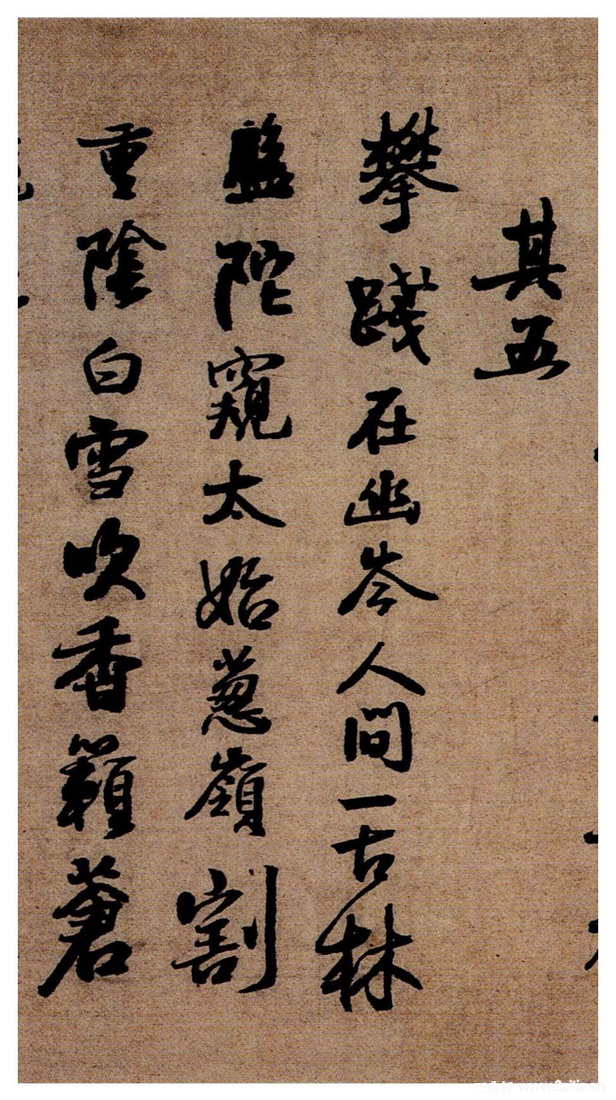 其五
攀踐在幽岑人間一古林
盤陀窺太始蔥嶺割
重陰白雪吹香籟蒼